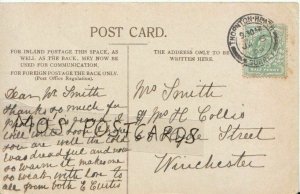 POST CARD.
FOR INLAND POSTAGE THIS SPACE, AS
WELL AS THE BACK, MEY NOW BE
USED FOR COMMUNICATION.
FOR FOREIGN POSTAGE THE BACK ONLY.
(Post Office Regulation).
THE ADDRESS ONLY TO BE
WRITTEN HERE.
THORNTON HEATH
Dear Mr Smith
thanks so much for
you are well the
was dreadful and
so warm it makes me
so weak with love to
all from both E
Mrs Smith
Mrs H Collis
Street
Winchester
MOS POSTCARDS